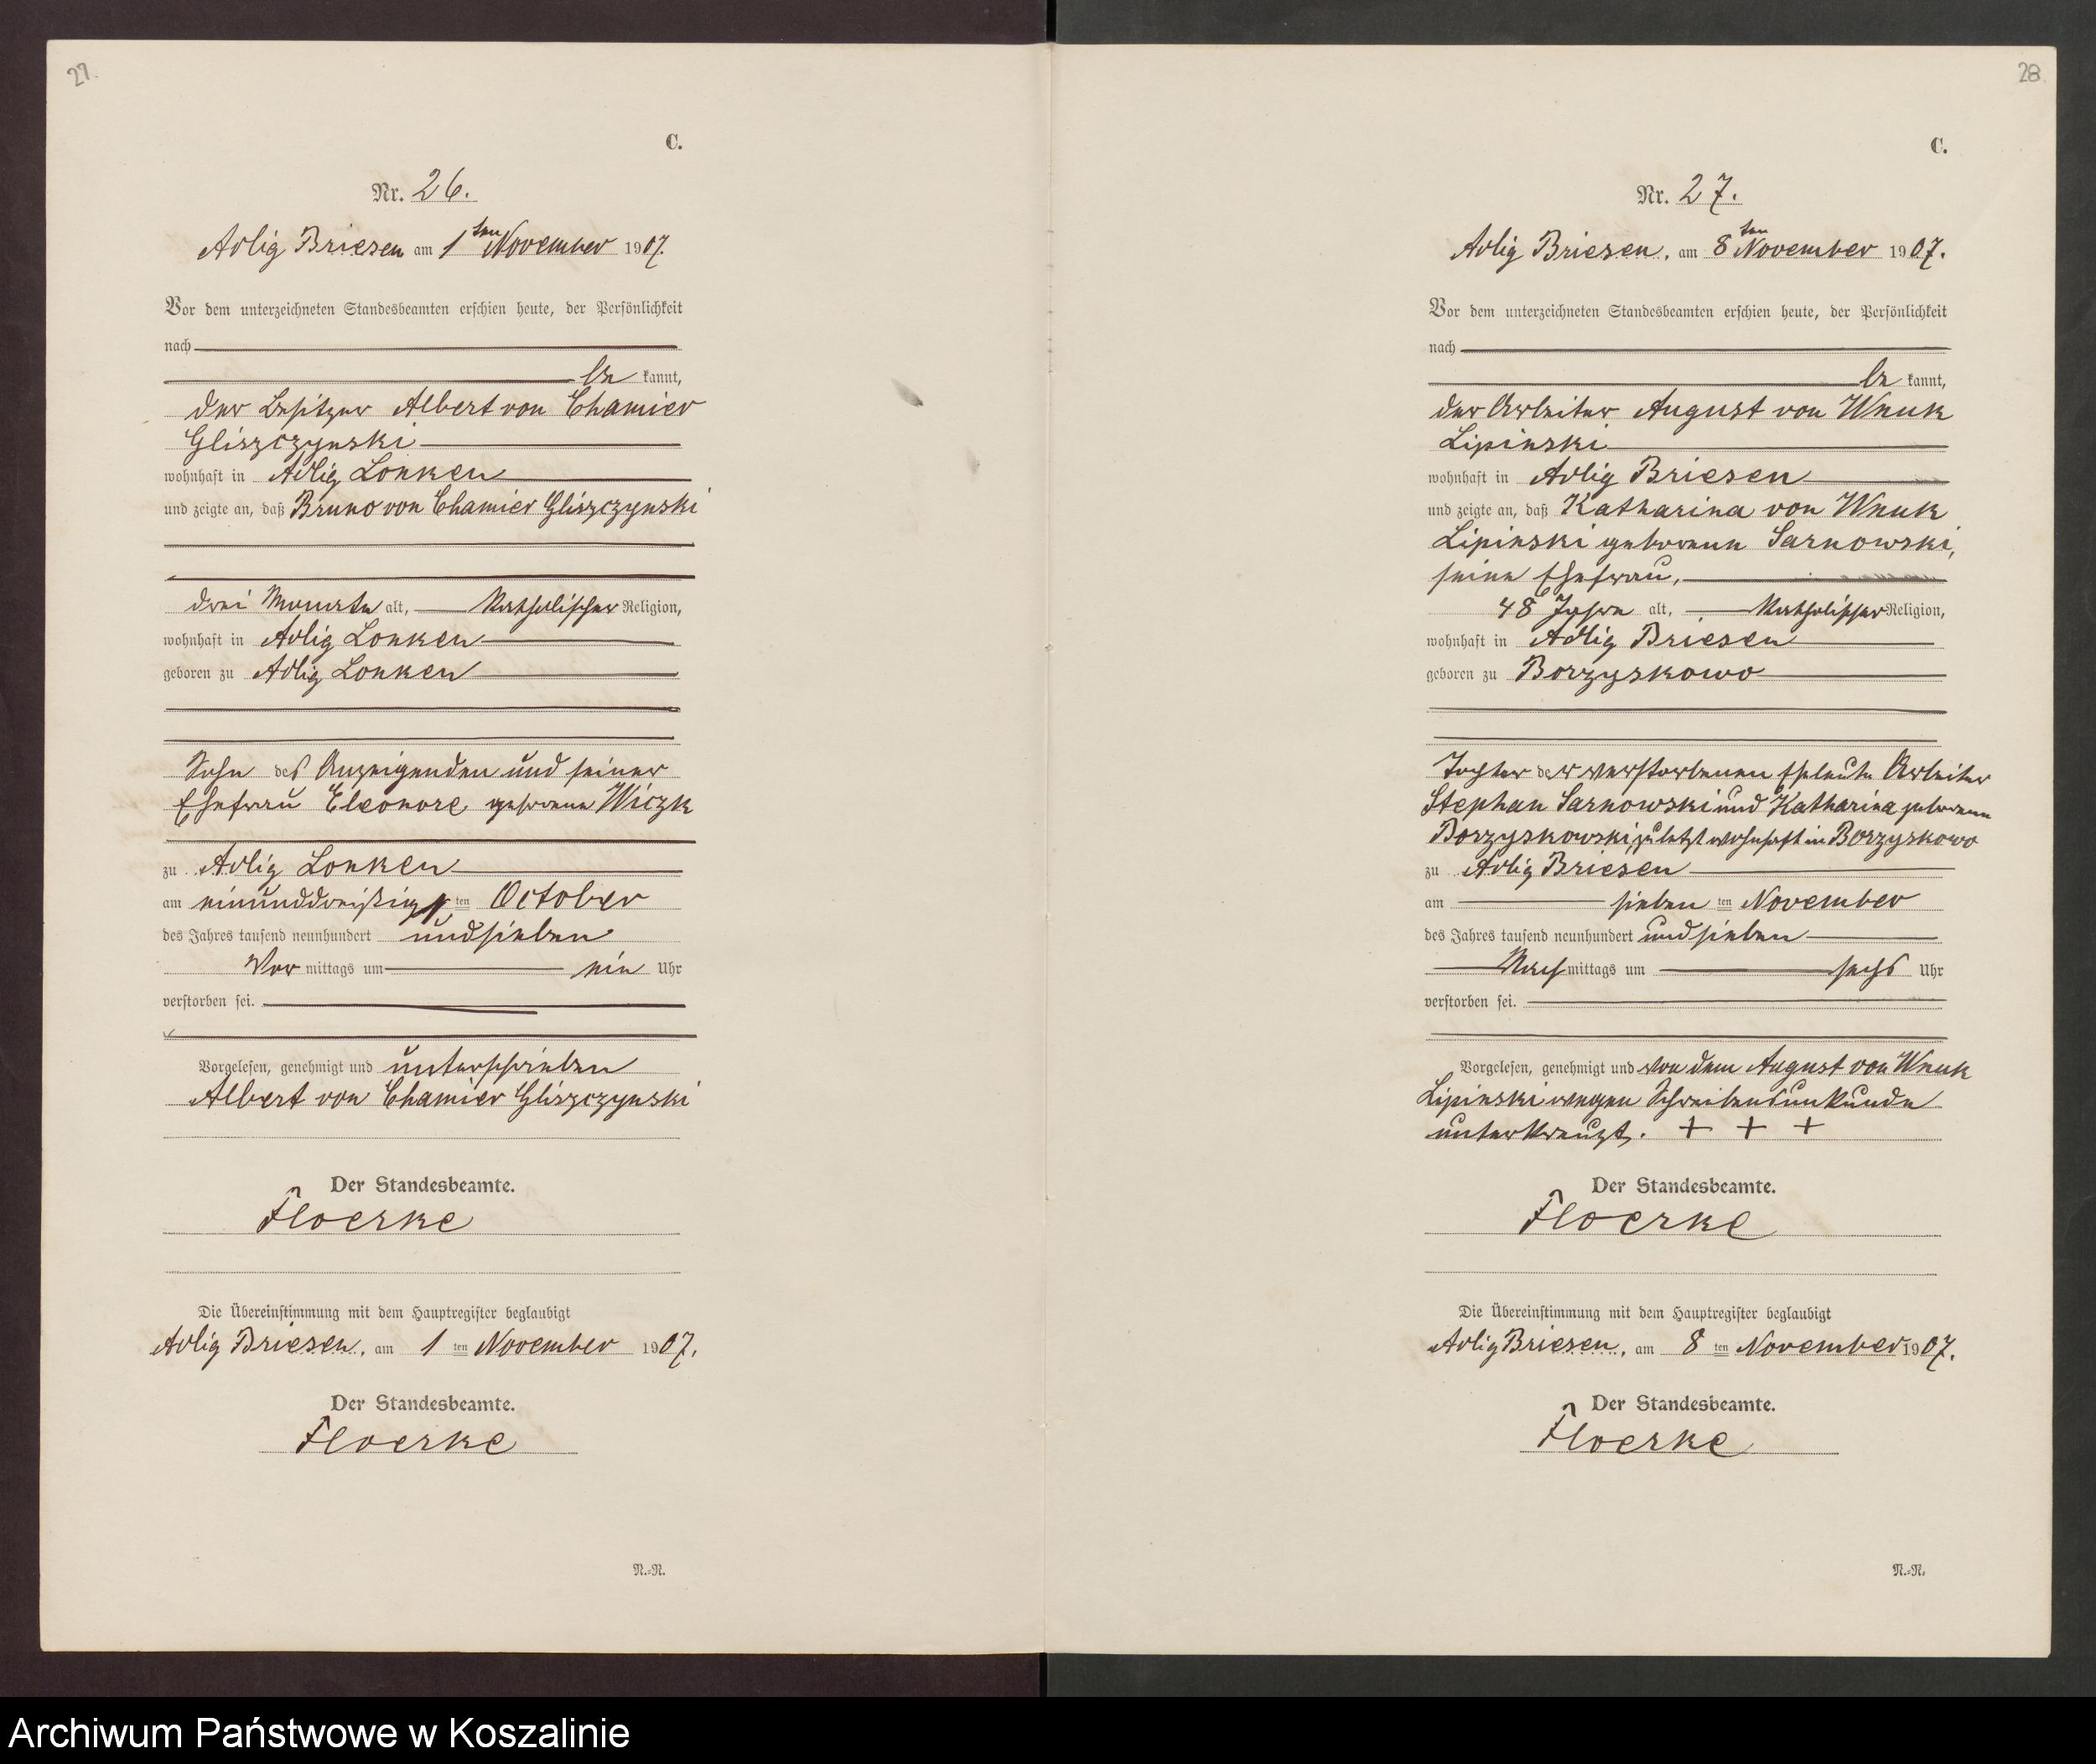 27.
C.
Nr. 26.
Adlig Briesen am 1ten November 1907.
Vor dem unterzeichneten Standesbeamten erschien heute, der Persönlichkeit
nach
be kannt,
der Besitzer Albert von Chamier
Gliszczynski
wohnhaft in Adlig Lonken
und zeigte an, daß Bruno von Chamier Gliszczynski
drei Monate alt, katholischer Religion,
wohnhaft in Adlig Lonken
geboren zu Adlig Lonken
Sohn des Anzeigenden und seiner
Ehefrau Eleonore, geborene Wiczk
zu Adlig Lonken
am einunddreißig ten October
des Jahres tausend neunhundert und sieben
Vor mittags um ein Uhr
verstorben sei.
Vorgelesen, genehmigt und unterschrieben
Albert von Chamier Gliszczynski
Der Standesbeamte.
Floerke
Die Übereinstimmung mit dem Hauptregister beglaubigt
Adlig Briesen, am 1 ten November 1907.
Der Standesbeamte.
Floerke
N.=N.
28
C.
Nr. 27.
Adlig Briesen, am 8ten November 1907.
Vor dem unterzeichneten Standesbeamten erschien heute, der Persönlichkeit
nach
be kannt,
der Arbeiter August von Wnuk
Lipinski
wohnhaft in Adlig Briesen
und zeigte an, daß Katharina von Wnuk
Lipinski geborene Sarnowski,
seine Ehefrau,
48 Jahre alt, katholischer Religion,
wohnhaft in Adlig Briesen
geboren zu Borzyskowo
Tochter der verstorbenen Eheleute Arbeiter
Stephan Sarnowski und Katharina geborene
Borzyskowski, zuletzt wohnhaft in Borzyskowo
zu Adlig Briesen
am sieben ten November
des Jahres tausend neunhundert und sieben
Nach mittags um sechs Uhr
verstorben sei.
Vorgelesen, genehmigt und von dem August von Wnuk
Lipinski wegen Schreibensunkunde
unterkreuzt. + + +
Der Standesbeamte.
Floerke
Die Übereinstimmung mit dem Hauptregister beglaubigt
Adlig Briesen, am 8 ten November 1907.
Der Standesbeamte.
Floerke
N.=N.
Archiwum Państwowe w Koszalinie